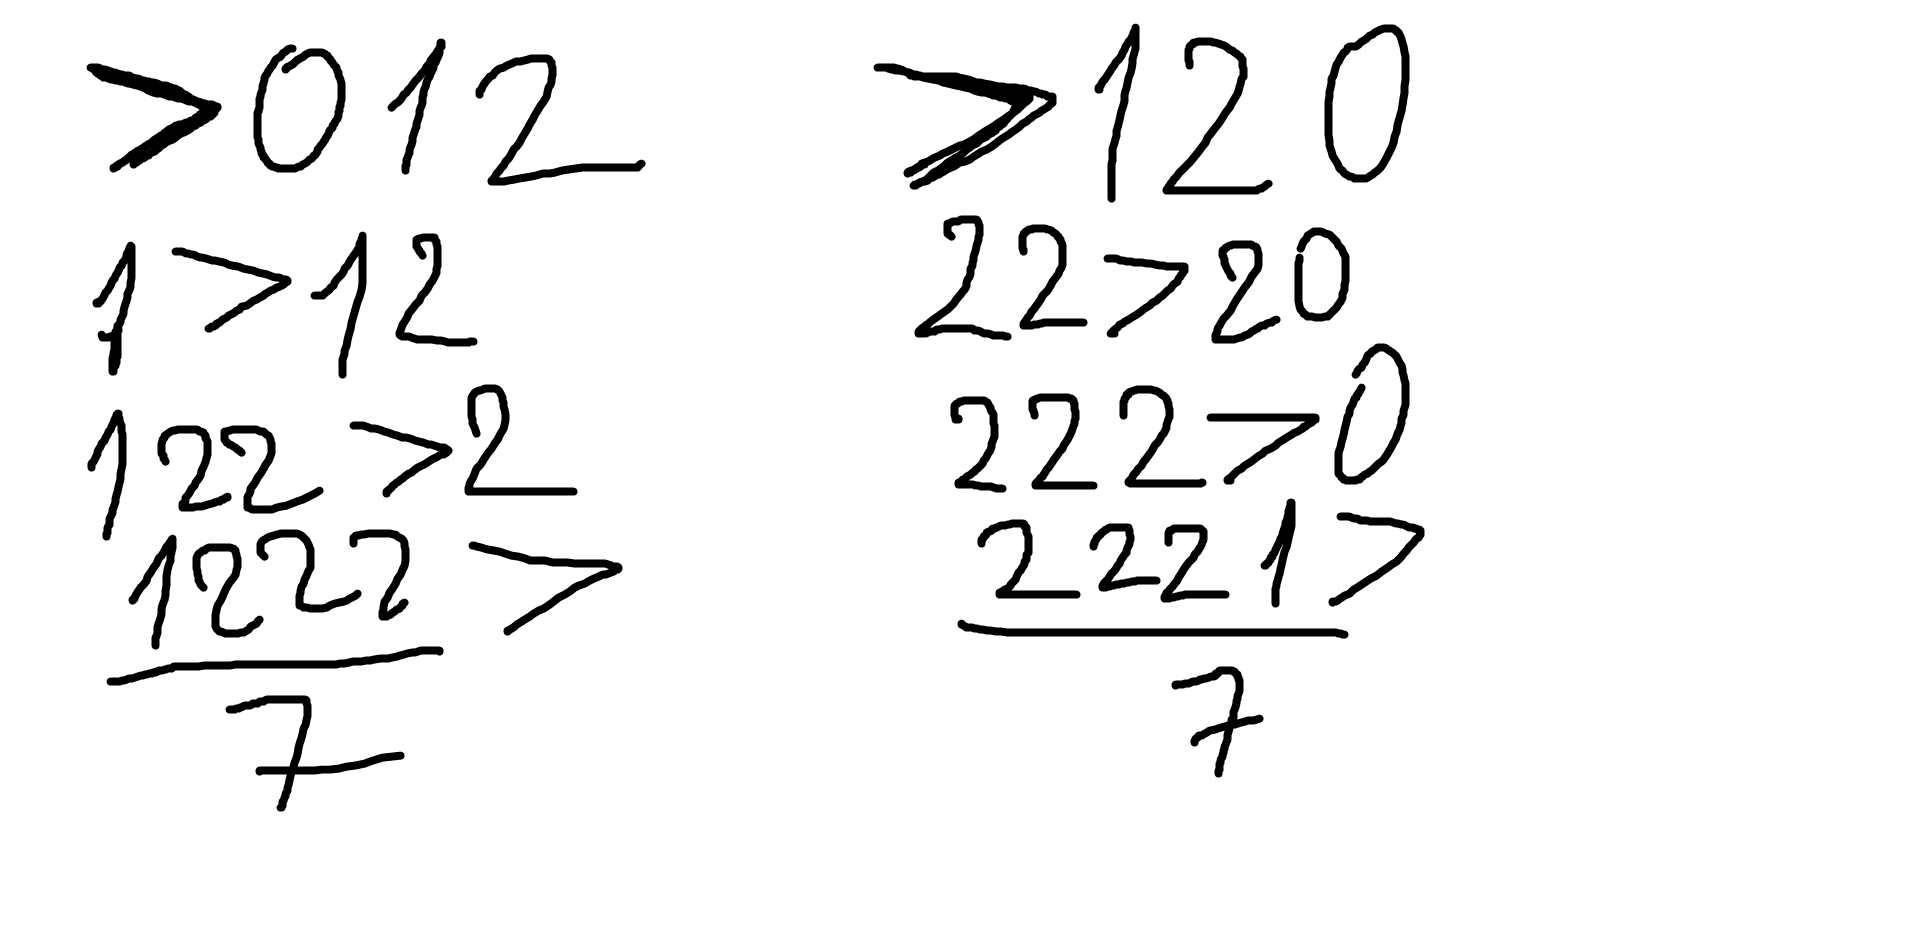 >012
1>12
122>2
1222>
7
>120
22>20
222>0
2221>
7